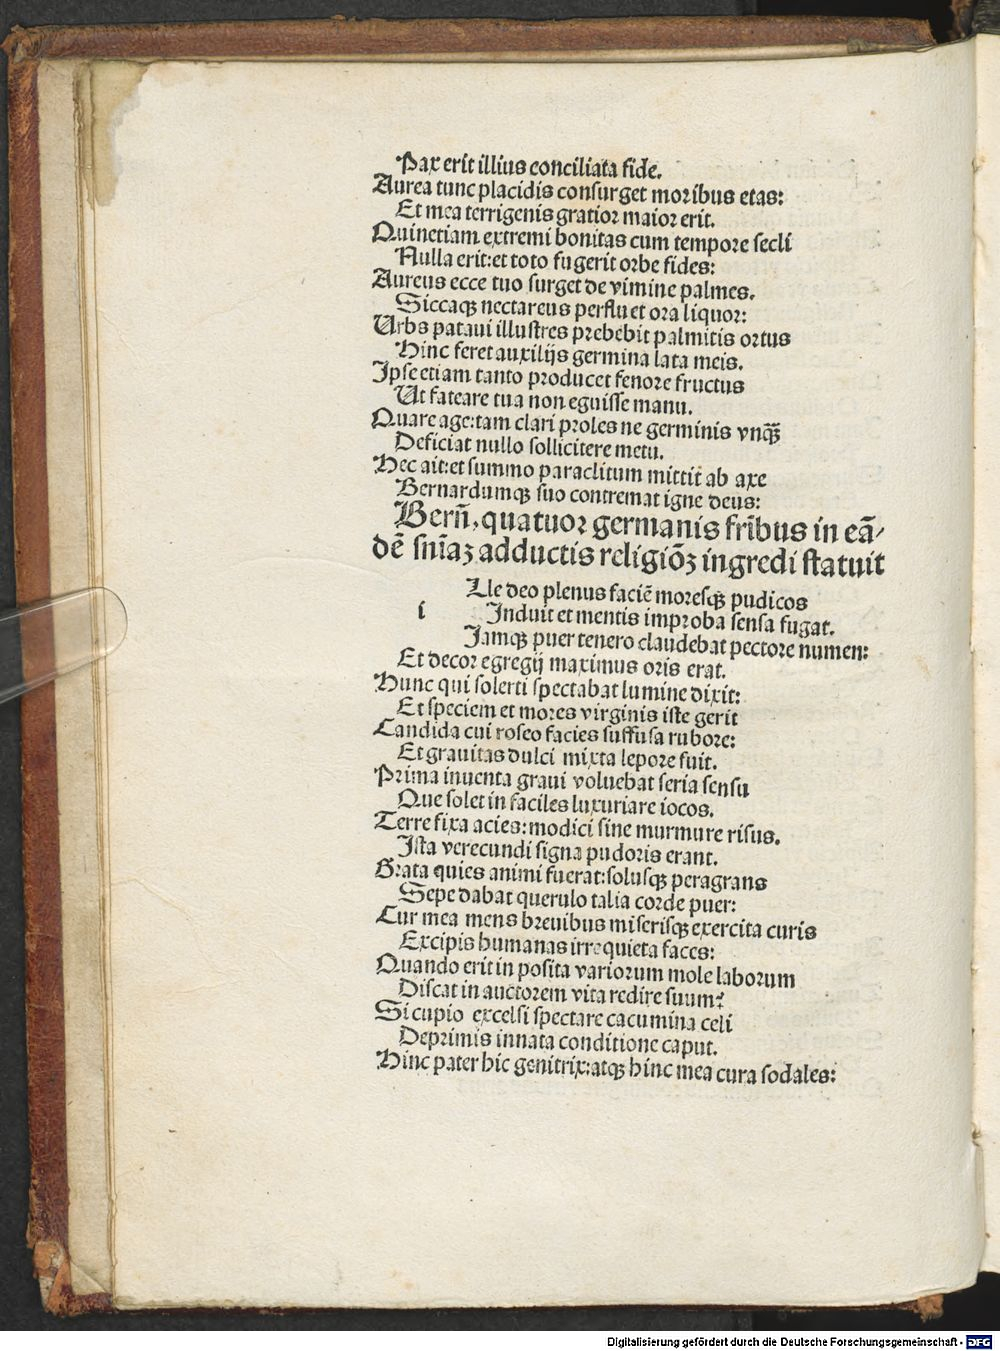 Pax erit illius conciliata fide.
Aurea tunc placidis consurget moribus etas:
Et mea terrigenis gratior maior erit.
Quinetiam extremi bonitas cum tempore secli
Nulla erit: et toto fugerit orbe fides:
Aureus ecce tuo surget de vimine palmes.
Siccaqꝫ nectareus perfluet ora liquor:
Urbs pataui illustres prebebit palmitis ortus
Hinc feret auxilijs germina lata meis.
Ipse etiam tanto producet fenore fructus
Ut fateare tua non eguisse manu.
Quare age: tam clari proles ne germinis vnqꝫ̃
Deficiat nullo sollicitere metu.
Hec ait: et summo paraclitum mittit̃ ab axe
Bernardumqꝫ suo contremat igne deus:
Bern̄, quatuor germanis fr̄ibus in eã⸗
dē sn̄iaꝫ adductis religiōꝫ ingredi statuit
Lle deo plenus faciē moresqꝫ pudicos
i Induit et mentis improba sensa fugat.
Jamqꝫ puer tenero claudebat pectore numen:
Et decor egregij maximus oris erat.
Hunc qui solerti spectabat lumine dixit:
Et speciem et mores virginis iste gerit
Candida cui roseo facies suffusa rubore:
Et grauitas dulci mixta lepore fuit.
Prima inuenta graui voluebat seria sensu
Que solet in faciles luxuriare iocos.
Terre fixa acies: modici sine murmure risus.
Ista verecundi signa pudoris erant.
Grata quies animi fuerat: solusqꝫ peragrans
Sepe dabat querulo talia corde puer:
Cur mea mens breuibus miserisqꝫ exercita curis
Excipis humanas irrequieta faces:
Quando erit in posita variorum mole laborum
Discat in auctorem vita redire suum?
Si cupio excelsi spectare cacumina celi
Deprimis innata conditione caput.
Hinc pater hic genitrix: atqꝫ hinc mea cura sodales:
Digitalisierung gefördert durch die Deutsche Forschungsgemeinschaft - DFG